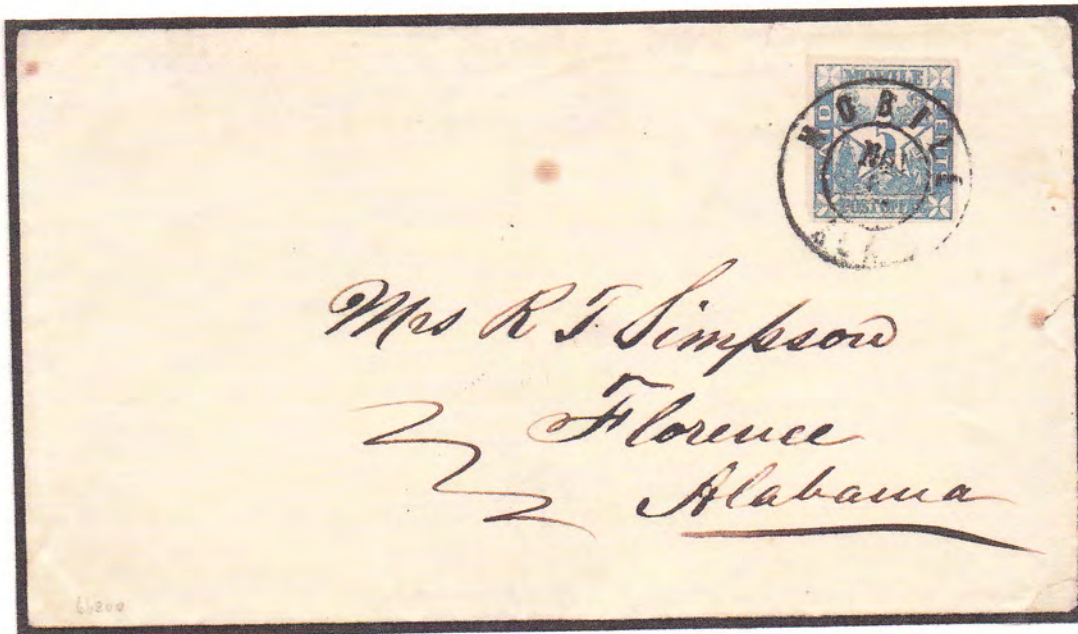 MOBILE
5
POST OFFICE
MOBILE
ALA
Mrs R T. Simpson
Florence
Alabama